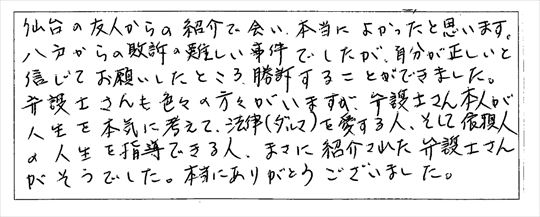 仙台の友人からの紹介で会い、本当によかったと思います。
八方からの敗訴の難しい事件でしたが、自分が正しいと
信じてお願いしたところ、勝訴することができました。
弁護士さんも色々の方々がいますが、弁護士さん本人が
人生を本気に考えて、法律(ダルマ)を愛する人、そして依頼人
の人生を指導できる人、まさに紹介された弁護士さん
がそうでした。本当にありがとうございました。